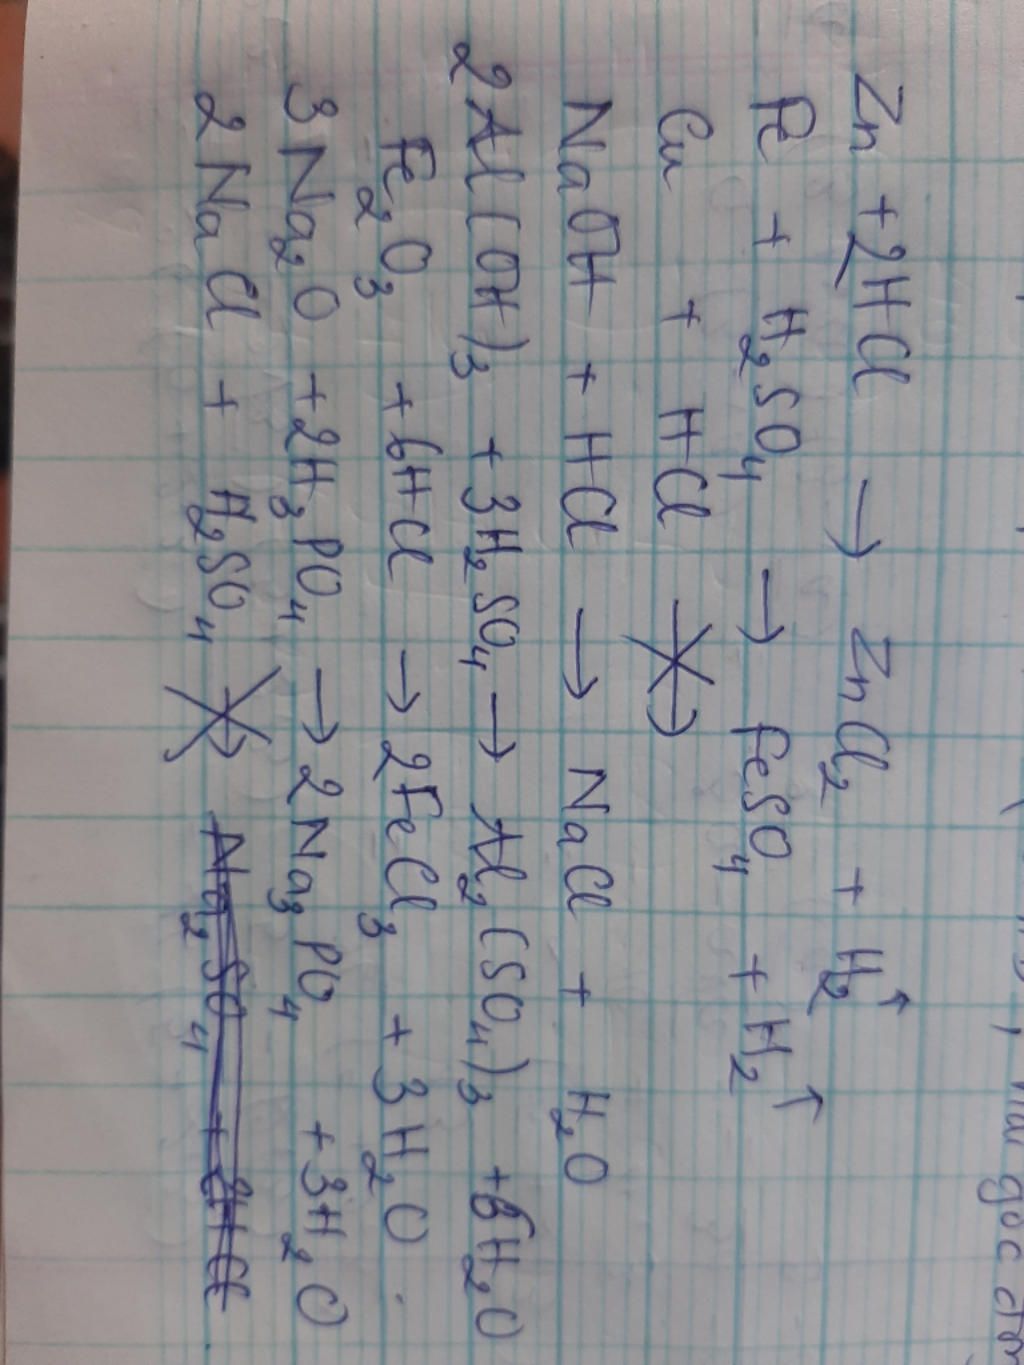 Zn + 2HCl → ZnCl₂ + H₂↑
Fe + H₂SO₄ → FeSO₄ + H₂↑
Cu + HCl ↛
NaOH + HCl → NaCl + H₂O
2Al(OH)₃ + 3H₂SO₄ → Al₂(SO₄)₃ + 6H₂O
Fe₂O₃ + 6HCl → 2FeCl₃ + 3H₂O.
3Na₂O + 2H₃PO₄ → 2Na₃PO₄ + 3H₂O
2NaCl + H₂SO₄ ↛ Na₂SO₄ + 2HCl.